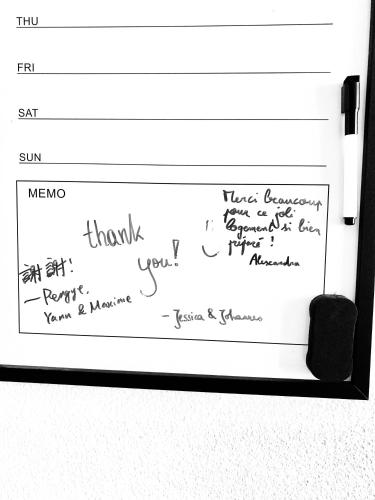 THU
FRI
SAT
SUN
MEMO
Merci beaucoup
pour ce joli
logement si bien
préparé !
Alexandra
thank
you!
謝謝!
Yann & Maxime
- Jessica & Johannes